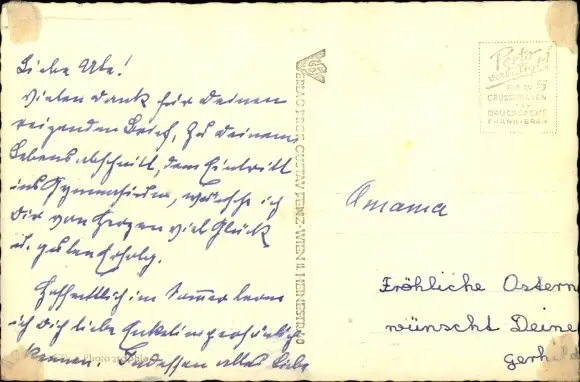 Liebe Ute!
Vielen Dank für Deinen
reizenden Brief, zu Deinem
Lebensabschnitt, dem Eintritt
ins Gymnasium, wünsche ich
Dir von Herzen viel Glück
u. guten Erfolg.
Hoffentlich im Sommer lern
ich Dich liebe Enkelin persönlich
kennen. Indessen alles Liebe
VERLAG PROF. GUSTAV WIEN II, HEINESTR.
Porto
GRUSSKARTEN
DRUCKSACHE
FRANKIEREN
Omama
Fröhliche Ostern
wünscht Deine
gerh